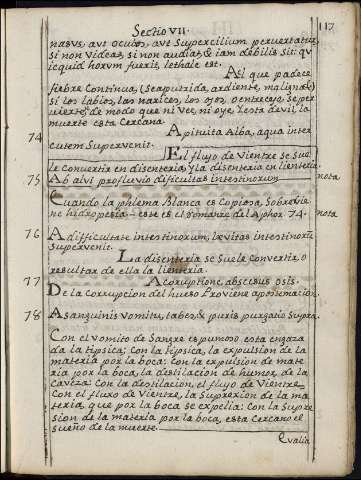 Sectio VII.
117
nasus, aut oculus, aut Supercilium pervertatur,
si non videat, si non audiat, & iam debilis sit: qu
icquid horum fuerit, lethale est.
Al que padece
fiebre Continua, (Sea putrida, ardiente, maligna &)
si los labios, las narices, los ojos, o entrecejo, se per
vierte, de modo que ni vee, ni oye, y esta devil, la
muerte esta Cercana
74 A pituita Alba, aqua inter
cutem Supervenit.
El flujo de Vientre se sue
le Convertir en disenteria, y la disenteria en lienteria.
75 Ab alvi profluvio difficultas intestinorum nota
Cuando la phlema Blanca es Copiosa, Sobrevie
ne hidropesia — este es el romanze del Aphor 74. nota
76 A difficultate intestinorum, lævitas intestinorũ
supervenit.
La disenteria se suele Convertir, o
resultar de ella la lienteria.
77 A corruptione, abscesus osis.
De la Corrupcion del hueso Proviene apostemacion.
78 A sanguinis Vomitu, tabes, & puris purgatio supra.
Con el vomito de Sangre espumoso esta engaza
da la tipsica; Con la tipsica, la expulsion de la
materia por la boca: Con la expulsion de mate
ria por la boca, la destilacion de humor, de la
caveza: Con la destilacion, el flujo de Vientre,
Con el fluxo de Vientre, la Suprexion de la ma
teria, que por la boca se expelia: Con la Supre
sion de la materia por la boca, esta Cercano el
sueño de la muerte.
Qualia